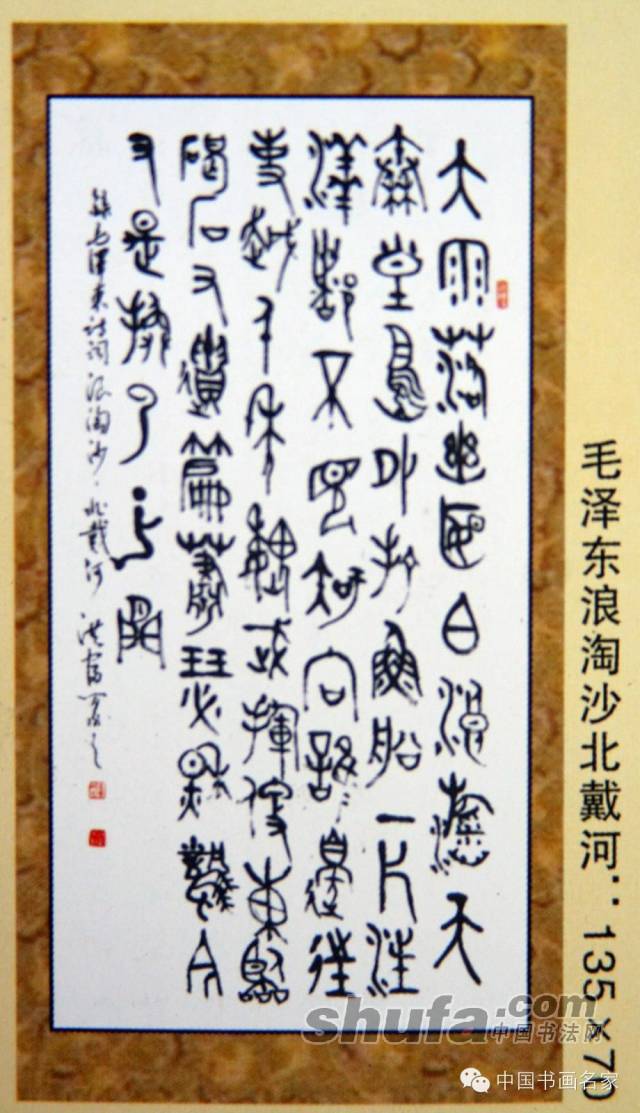 大雨落幽燕白浪滔天
秦皇島外打魚船一片汪
洋都不見知向誰邊往
事越千年魏武揮鞭東臨
碣石有遺篇蕭瑟秋風今
又是換了人間
錄毛澤東詩詞浪淘沙·北戴河
毛泽东浪淘沙北戴河：135×70
shufa.com
中国书法网
中国书画名家